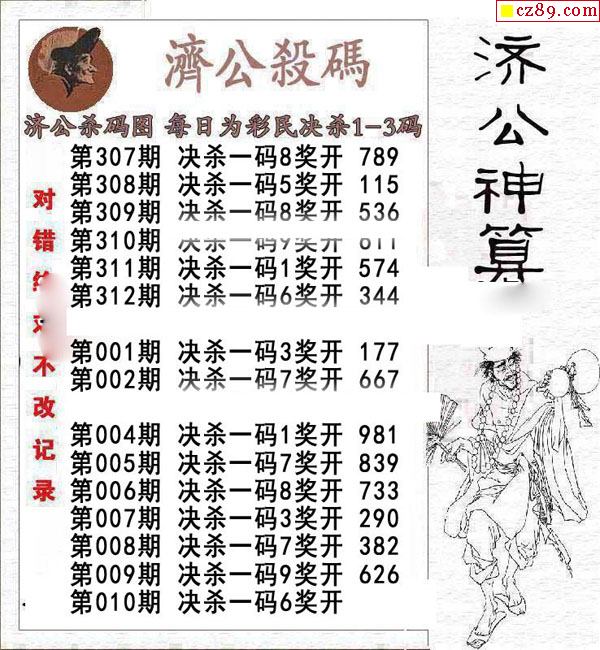 cz89.com
濟公殺碼
济公杀码图 每日为彩民决杀1-3码
第307期 决杀一码8奖开 789
第308期 决杀一码5奖开 115
第309期 决杀一码8奖开 536
第310期 决杀一码9奖开 611
第311期 决杀一码1奖开 574
第312期 决杀一码6奖开 344
第001期 决杀一码3奖开 177
第002期 决杀一码7奖开 667
第004期 决杀一码1奖开 981
第005期 决杀一码7奖开 839
第006期 决杀一码8奖开 733
第007期 决杀一码3奖开 290
第008期 决杀一码7奖开 382
第009期 决杀一码9奖开 626
第010期 决杀一码6奖开
对错绝对不改记录
济公神算